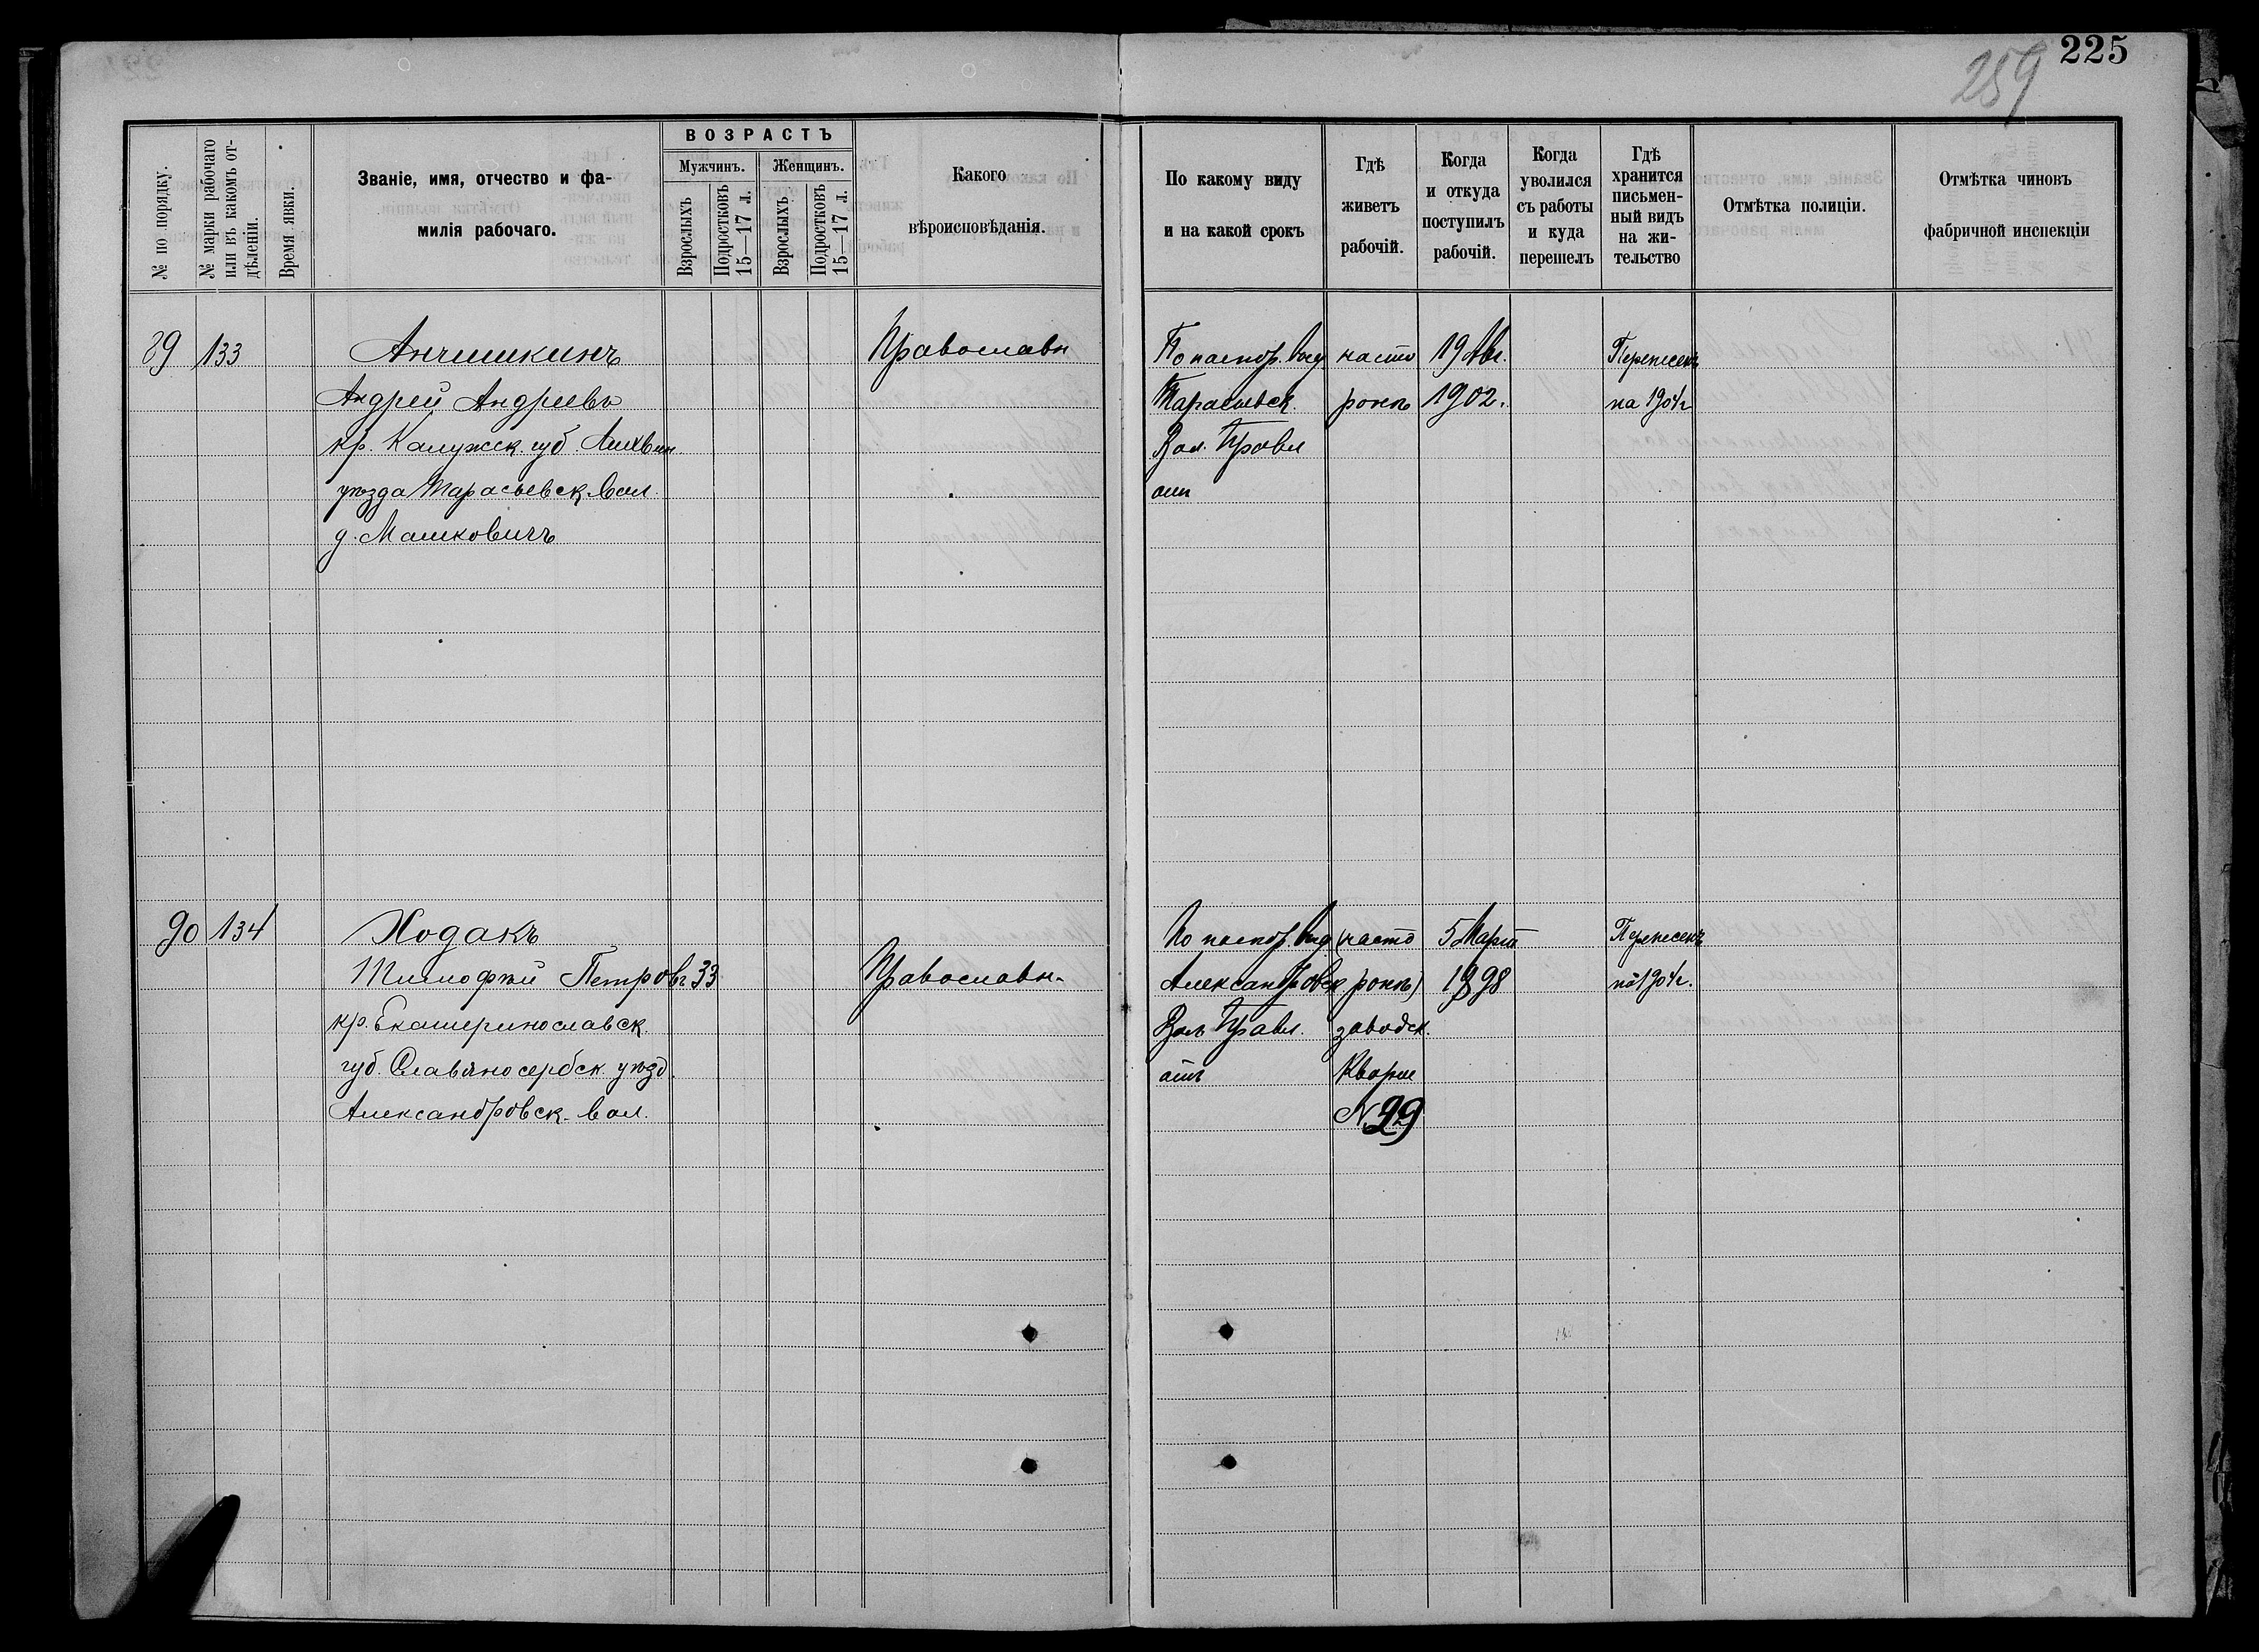 225
259
№ по порядку.
№ марки рабочаго или въ какомъ отдѣленіи.
Время явки.
Званіе, имя, отчество и фа-
милія рабочаго.
ВОЗРАСТЪ
Мужчинъ.
Женщинъ.
Взрослыхъ
Подростковъ 15—17 л.
Взрослыхъ
Подростковъ 15—17 л.
Какого
вѣроисповѣданія.
По какому виду
и на какой срокъ
Гдѣ
живетъ
рабочій.
Когда
и откуда
поступилъ
рабочій.
Когда
уволился
съ работы
и куда
перешелъ
Гдѣ
хранится
письмен-
ный видъ
на жи-
тельство
Отмѣтка полиціи.
Отмѣтка чиновъ
фабричной инспекціи
89 133
Анчишкинъ
Андрей Андреевъ
кр. Калужск. губ. Лихвин
уѣзда Тарасьевск. вол.
д. Машковичъ
Православн
По паспор. вид.
Тарасьевск.
Вол. Правл
отъ
часто
ронъ
19 Авг.
1902.
Перенесенъ
на 1904г
90 134
Ходакъ
Тимофѣй Петровъ 33
кр. Екатеринославск.
губ. Славяносербск. уѣзд.
Александровск. вол.
Православн.
По паспор. вид
Александровск
Вол. Правл.
отъ
(часто
ронъ)
заводск.
Кварт
№ 29
5 Март
1898
Перенесенъ
на 1904г.